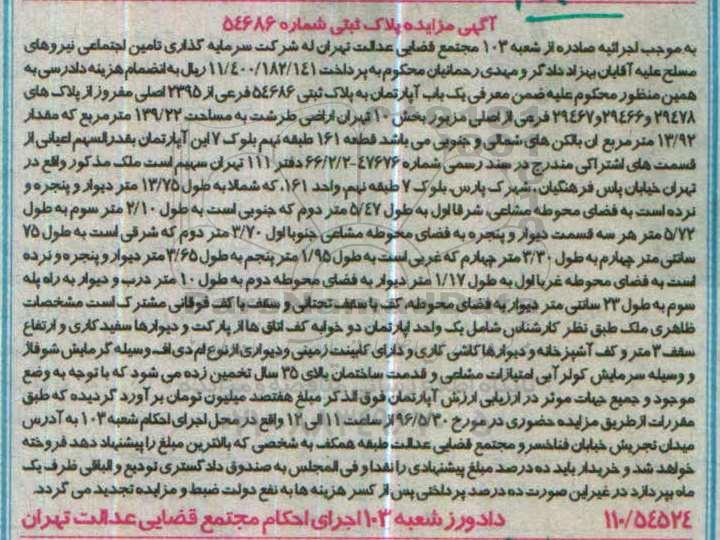 آگهی مزایده پلاک ثبتی شماره ۵۴۶۸۶
به موجب اجرائیه صادره از شعبه ۱۰۳ مجتمع قضایی عدالت تهران له شرکت سرمایه گذاری تامین اجتماعی نیروهای
مسلح علیه آقایان بهزاد دادگر و مهدی رحمانیان محکوم به پرداخت ۱۱/۴۰۰/۱۸۲/۱۴۱ ریال به انضمام هزینه دادرسی به
همین منظور محکوم علیه ضمن معرفی یک باب آپارتمان به پلاک ثبتی ۵۴۶۸۶ فرعی از ۲۳۹۵ اصلی مفروز از پلاک های
۲۹۴۷۸ و ۲۹۴۶۶و ۲۹۴۶۷ فرعی از اصلی مزبور بخش ۱۰ تهران اراضی طرشت به مساحت ۱۳۹/۲۲ متر مربع که مقدار
۱۳/۹۲ متر مربع آن بالکن های شمالی و جنوبی می باشد قطعه ۱۶۱ طبقه نهم بلوک ۷ این آپارتمان بقدرالسهم اعیانی از
قسمت های اشتراکی مندرج در سند رسمی شماره ۴۷۶۷۶-۶۶/۲/۲ دفتر ۱۱۱ تهران سهیم است ملک مذکور واقع در
تهران خیابان یاس فرهنگیان، شهرک پارس، بلوک ۷ طبقه نهم، واحد ۱۶۱، که شمالا به طول ۱۳/۷۵ متر دیوار و پنجره و
نرده است به فضای محوطه مشاعی، شرقا اول به طول ۵/۴۷ متر دوم که جنوبی است به طول ۲/۱۰ متر سوم به طول
۵/۷۲ متر هر سه قسمت دیوار و پنجره به فضای محوطه مشاعی جنوبا اول ۳/۷۰ متر دوم که شرقی است به طول ۷۵
سانتی متر چهارم به طول ۳/۳۰ متر چهارم که غربی است به طول ۱/۹۵ متر پنجم به طول ۳/۶۵ متر دیوار و پنجره و نرده
است به فضای محوطه غربا اول به طول ۱/۱۷ متر دیوار به فضای محوطه دوم به طول ۱۰ متر درب و دیوار به راه پله
سوم به طول ۲۳ سانتی متر دیوار به فضای محوطه، کف با سقف تحتانی و سقف با کف فوقانی مشترک است مشخصات
ظاهری ملک طبق نظر کارشناس شامل یک واحد آپارتمان دو خوابه کف اتاق ها از پارکت و دیوارها سفید کاری و ارتفاع
سقف ۳ متر و کف آشپزخانه و دیوارها کاشی کاری و دارای کابینت زمینی و دیواری از نوع ام دی اف، وسیله گرمایش شوفاژ
و وسیله سرمایش کولر آبی امتیازات مشاعی و قدمت ساختمان بالای ۳۵ سال تخمین زده می شود که با توجه به وضع
موجود و جمیع جهات موثر در ارزیابی ارزش آپارتمان فوق الذکر مبلغ هفتصد میلیون تومان برآورد گردیده که طبق
مقررات از طریق مزایده حضوری در مورخ ۹۶/۵/۳۰ از ساعت ۱۱ الی ۱۲ واقع در محل اجرای احکام شعبه ۱۰۳ به آدرس
میدان تجریش خیابان فناخسرو مجتمع قضایی عدالت طبقه همکف به شخصی که بالاترین مبلغ را پیشنهاد دهد فروخته
خواهد شد و خریدار باید ده درصد مبلغ پیشنهادی را نقدا و فی المجلس به صندوق دادگستری تودیع و الباقی ظرف یک
ماه بپردازد در غیر این صورت ده درصد پرداختی پس از کسر هزینه ها به نفع دولت ضبط و مزایده تجدید می گردد.
۱۱۰/۵۴۵۲۴ دادورز شعبه ۱۰۳ اجرای احکام مجتمع قضایی عدالت تهران